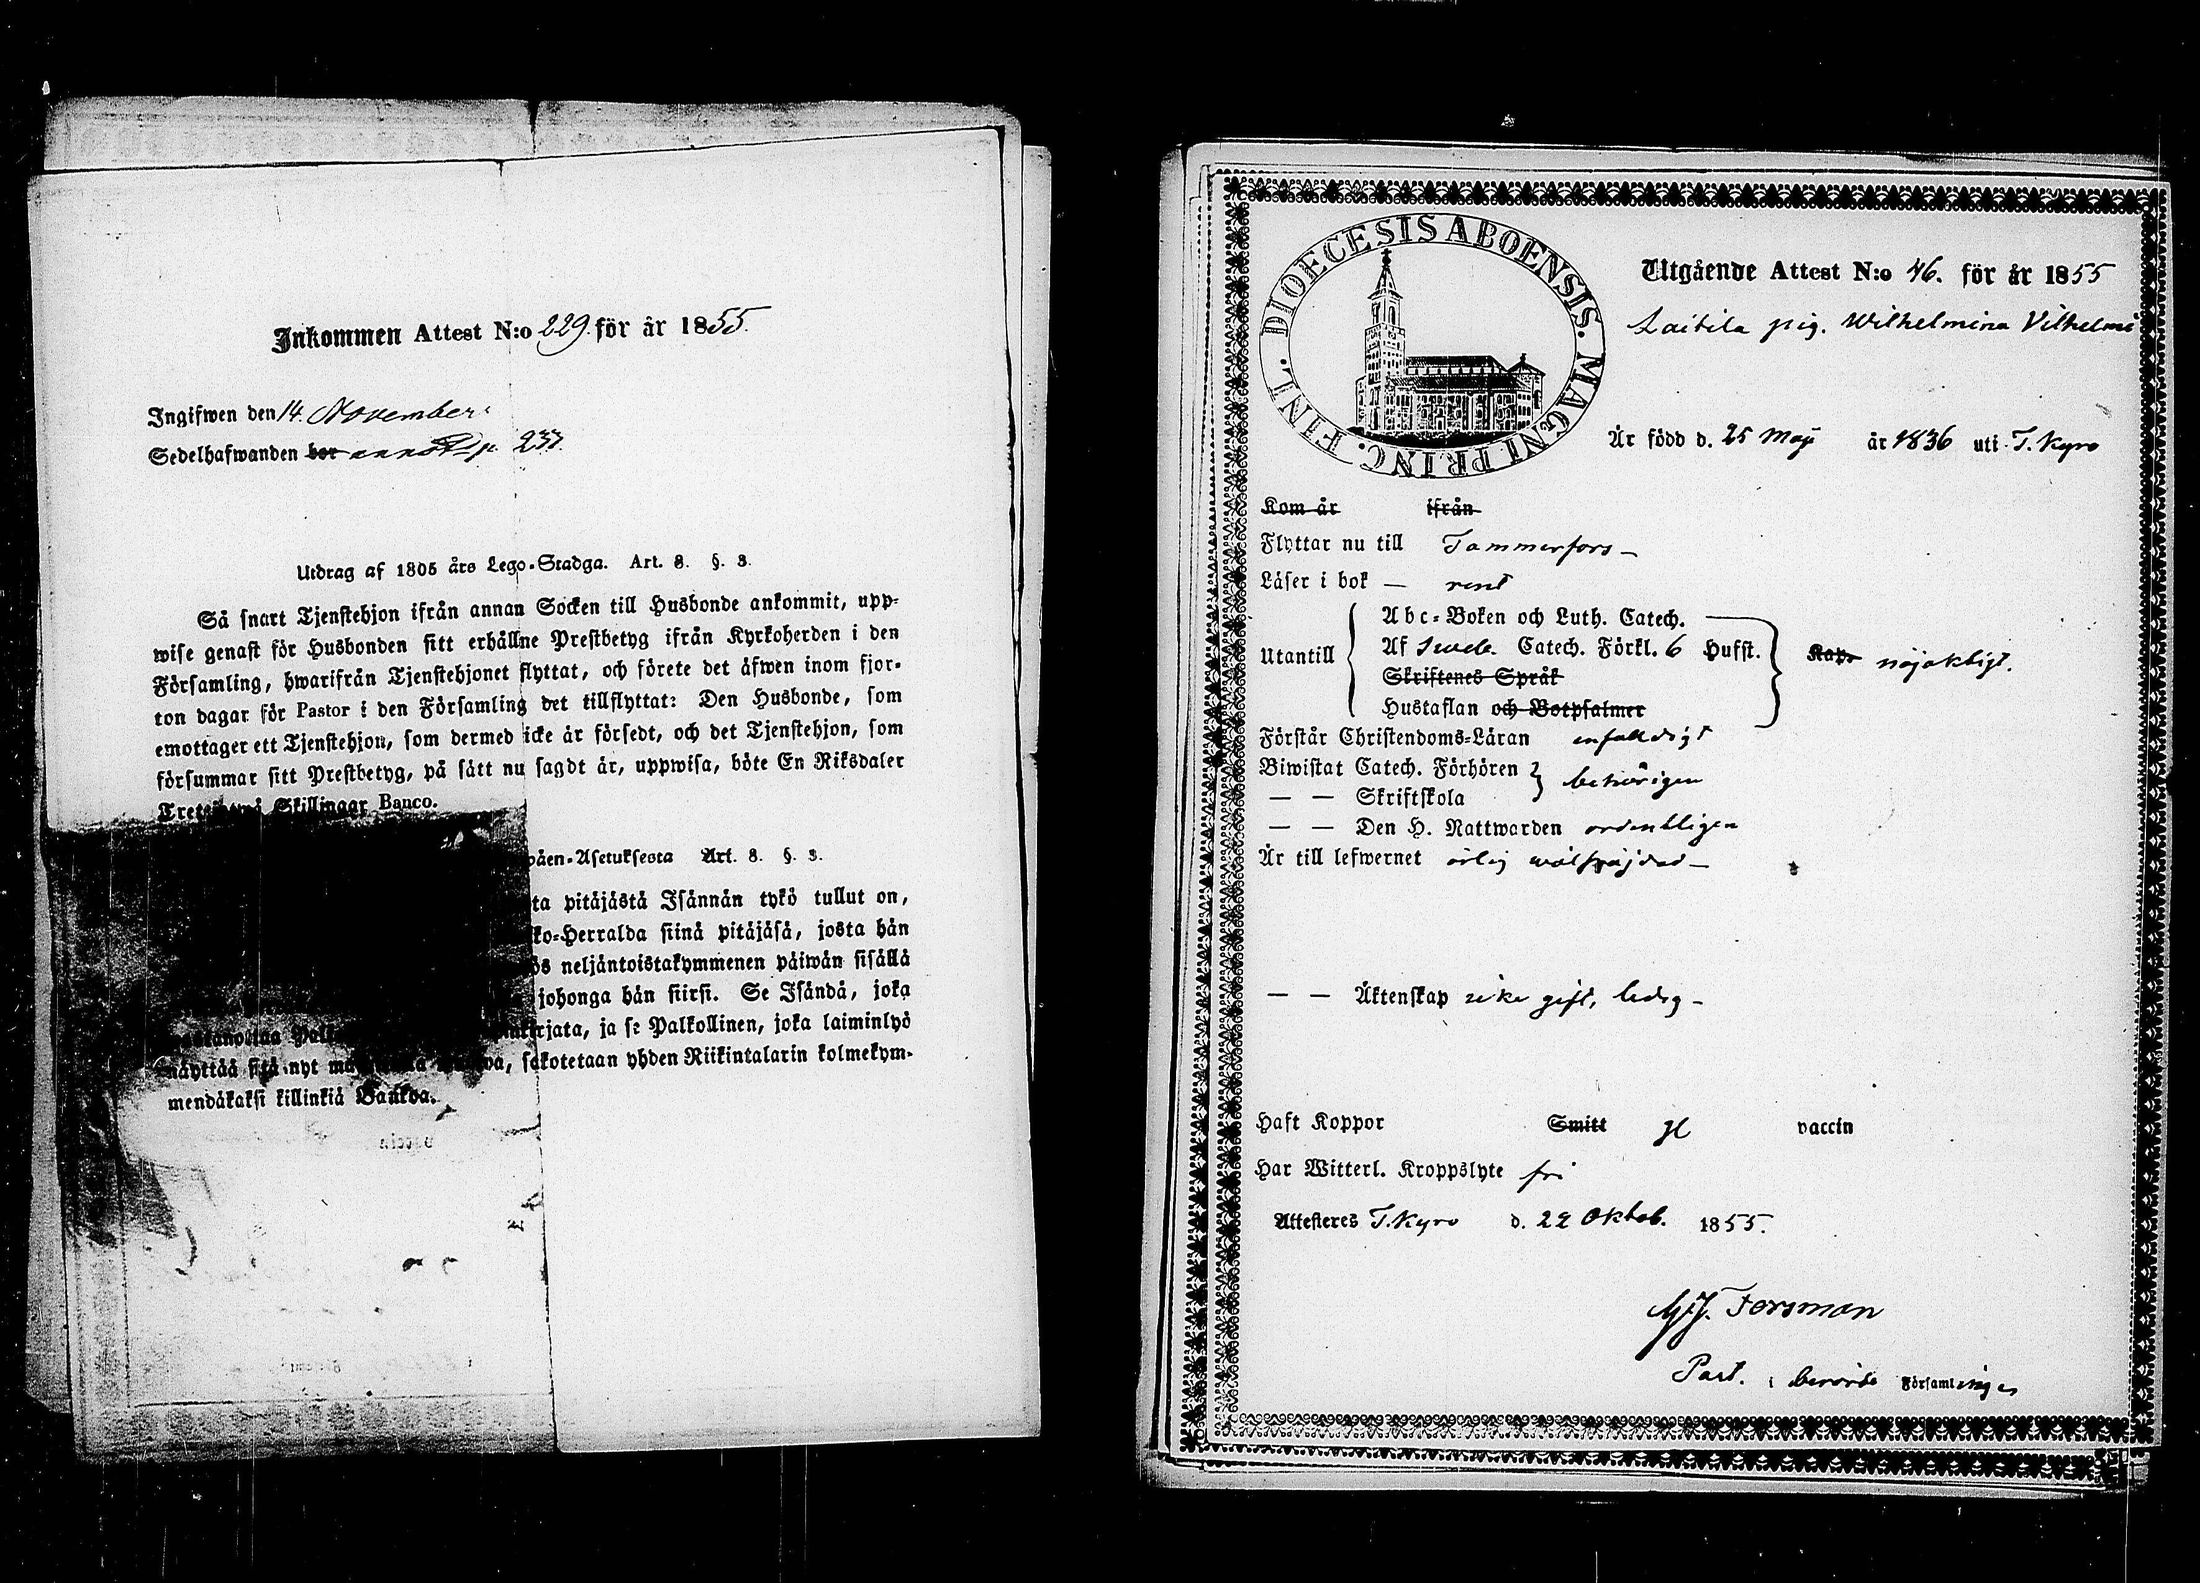 Inkommen Attest N:o 229. för år 1855.
Ingifwen den 14. November
Sedelhafwanden bor p. 237.
Utdrag af 1805 års Lego-Stadga. Art. 8. §. 3.
Så snart Tjenstehjon ifrån annan Socken till Husbonde ankommit, upp-
wise genast för Husbonden sitt erhållne Prestbetyg ifrån Kyrkoherden i den
Församling, hwarifrån Tjenstehjonet flyttat, och förete det åfwen inom fjor-
ton dagar för Pastor i den Församling det tillflyttat: Den Husbonde, som
emottager ett Tjenstehjon, som dermed icke är försedt, och det Tjenstehjon, som
försummar sitt Prestbetyg, på sätt nu sagdt är, uppwisa, böte En Riksdaler
Skillingar Banco.
Asetuksesta Art. 8. §. 3.
ta pitäjästä Isännän tykö tullut on,
ko-Herralda siinä pitäjäsä, josta hän
ös neljäntoistakymmenen päiwän sisällä
johonga hän siirsi. Se Isändä, joka
rjata, ja se Palkollinen, joka laiminlyö
näyttää sitä nyt wa, sakotetaan yhden Riikintalarin kolmekym-
mendäkaksi killinkiä Bankoa.
DIOECESIS ABOENSIS. MAGNI PRINC. FINL.
Utgående Attest N:o 46. för år 1855
Laitila pig. Wilhelmina Vilhelmi
Är född d. 25 Maji år 1836 uti T. Kyro
Kom år ifrån
Flyttar nu till Tammerfors –
Läser i bok – rent
Utantill
Abc-Boken och Luth. Catech.
Af Sweb. Catech. Förkl. 6 Hufst.
Skriftenes Språk
Hustaflan och Botpsalmer
nöjaktigt.
Förstår Christendoms-Läran enfaldigt
Biwistat Catech. Förhören
— — Skriftskola
behörigen
— — Den H. Nattwarden ordentligen
Är till lefwernet ärlig wälfräjdad –
— — Äktenskap icke gift, ledig –
Haft Koppor Smitt vaccin
Har Witterl. Kroppslyte fri
Attesteres T. Kyro d. 22 Oktob. 1855.
Forsman
Past. i berörde Församlingen